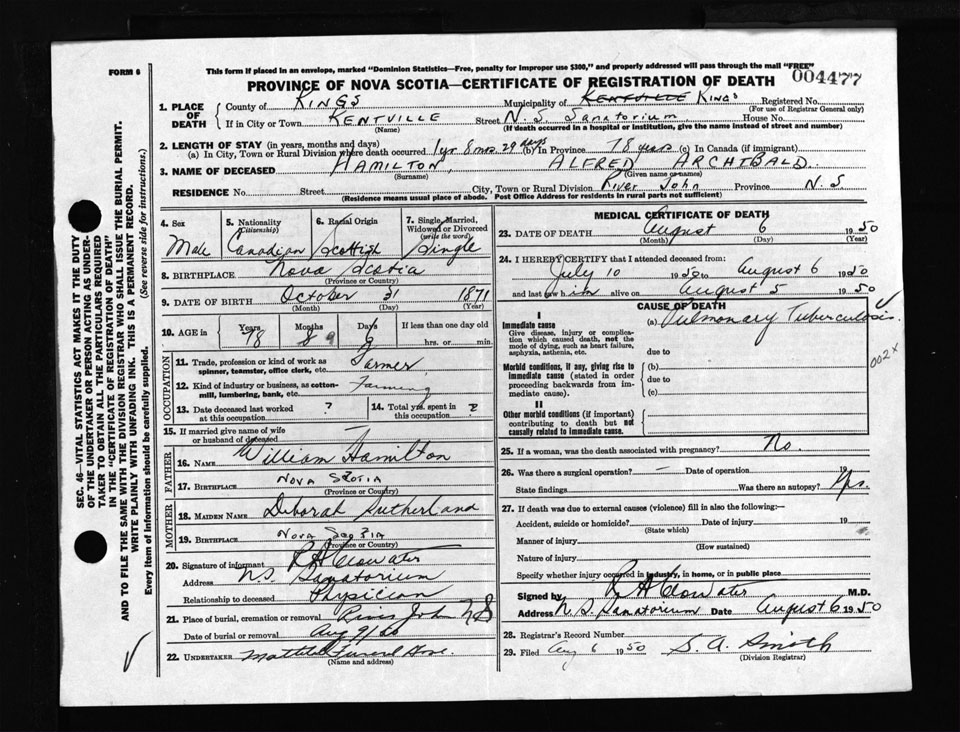 FORM 6
This form if placed in an envelope, marked "Dominion Statistics—Free, penalty for improper use $300," and properly addressed will pass through the mail "FREE"
004477
PROVINCE OF NOVA SCOTIA—CERTIFICATE OF REGISTRATION OF DEATH
1. PLACE OF DEATH
County of KINGS Municipality of KENTVILLE KINGS Registered No.
(For use of Registrar General only)
If in City or Town KENTVILLE Street N. S. Sanatorium House No.
(Name) (If death occurred in a hospital or institution, give the name instead of street and number)
2. LENGTH OF STAY (in years, months and days)
(a) In City, Town or Rural Division where death occurred 1yr 8 mos 29 days (b) In Province 78 years (c) In Canada (if immigrant)
3. NAME OF DECEASED HAMILTON, ALFRED ARCHIBALD.
(Surname) (Given name or names)
RESIDENCE No. Street City, Town or Rural Division River John Province N. S
(Residence means usual place of abode. Post Office Address for residents in rural parts not sufficient)
4. Sex Male
5. Nationality (Citizenship) Canadian
6. Racial Origin Scottish
7. Single, Married, Widowed or Divorced (write the word) Single
8. BIRTHPLACE Nova Scotia
(Province or Country)
9. DATE OF BIRTH October 31 1871
(Month) (Day) (Year)
10. AGE in Years 78 Months 8 9 Days 9 If less than one day old
hrs. or min.
OCCUPATION
11. Trade, profession or kind of work as spinner, teamster, office clerk, etc. Farmer
12. Kind of industry or business, as cotton-mill, lumbering, bank, etc. Farming
13. Date deceased last worked at this occupation ?
14. Total yrs. spent in this occupation ?
15. If married give name of wife or husband of deceased —
FATHER
16. NAME William Hamilton
17. BIRTHPLACE NOVA SCOTIA
(Province or Country)
MOTHER
18. MAIDEN NAME Deborah Sutherland
19. BIRTHPLACE NOVA SCOTIA
(Province or Country)
20. Signature of informant R H Clowater
Address N.S. Sanatorium
Relationship to deceased Physician
21. Place of burial, cremation or removal River John NS
Date of burial or removal Aug 9/50
22. UNDERTAKER Funeral Home.
(Name and address)
MEDICAL CERTIFICATE OF DEATH
23. DATE OF DEATH August 6 1950
(Month) (Day) (Year)
24. I HEREBY CERTIFY that I attended deceased from:
July 10 1950 to August 6 1950
and last saw him alive on August 5 1950
CAUSE OF DEATH
I
Immediate cause
Give disease, injury or complication which caused death, not the mode of dying, such as heart failure, asphyxia, asthenia, etc.
(a) Pulmonary Tuberculosis.
due to
002 x
Morbid conditions, if any, giving rise to immediate cause (stated in order proceeding backwards from immediate cause).
(b)
due to
(c)
II
Other morbid conditions (if important) contributing to death but not causally related to immediate cause.
25. If a woman, was the death associated with pregnancy? No.
26. Was there a surgical operation? — Date of operation 19
State findings Was there an autopsy?
27. If death was due to external causes (violence) fill in also the following:—
Accident, suicide or homicide? Date of injury 19
(State which)
Manner of injury
(How sustained)
Nature of injury
Specify whether injury occurred in industry, in home, or in public place
Signed by R H Clowater M.D.
Address N. S. Sanatorium Date August 6 1950
28. Registrar's Record Number
29. Filed Aug 6 1950 S. A. Smith
(Division Registrar)
SEC. 46—VITAL STATISTICS ACT MAKES IT THE DUTY
OF THE UNDERTAKER OR PERSON ACTING AS UNDER-
TAKER TO OBTAIN ALL THE PARTICULARS REQUIRED
IN THE "CERTIFICATE OF REGISTRATION OF DEATH"
AND TO FILE THE SAME WITH THE DIVISION REGISTRAR WHO SHALL ISSUE THE BURIAL PERMIT.
WRITE PLAINLY WITH UNFADING INK. THIS IS A PERMANENT RECORD.
Every item of Information should be carefully supplied. (See reverse side for instructions.)